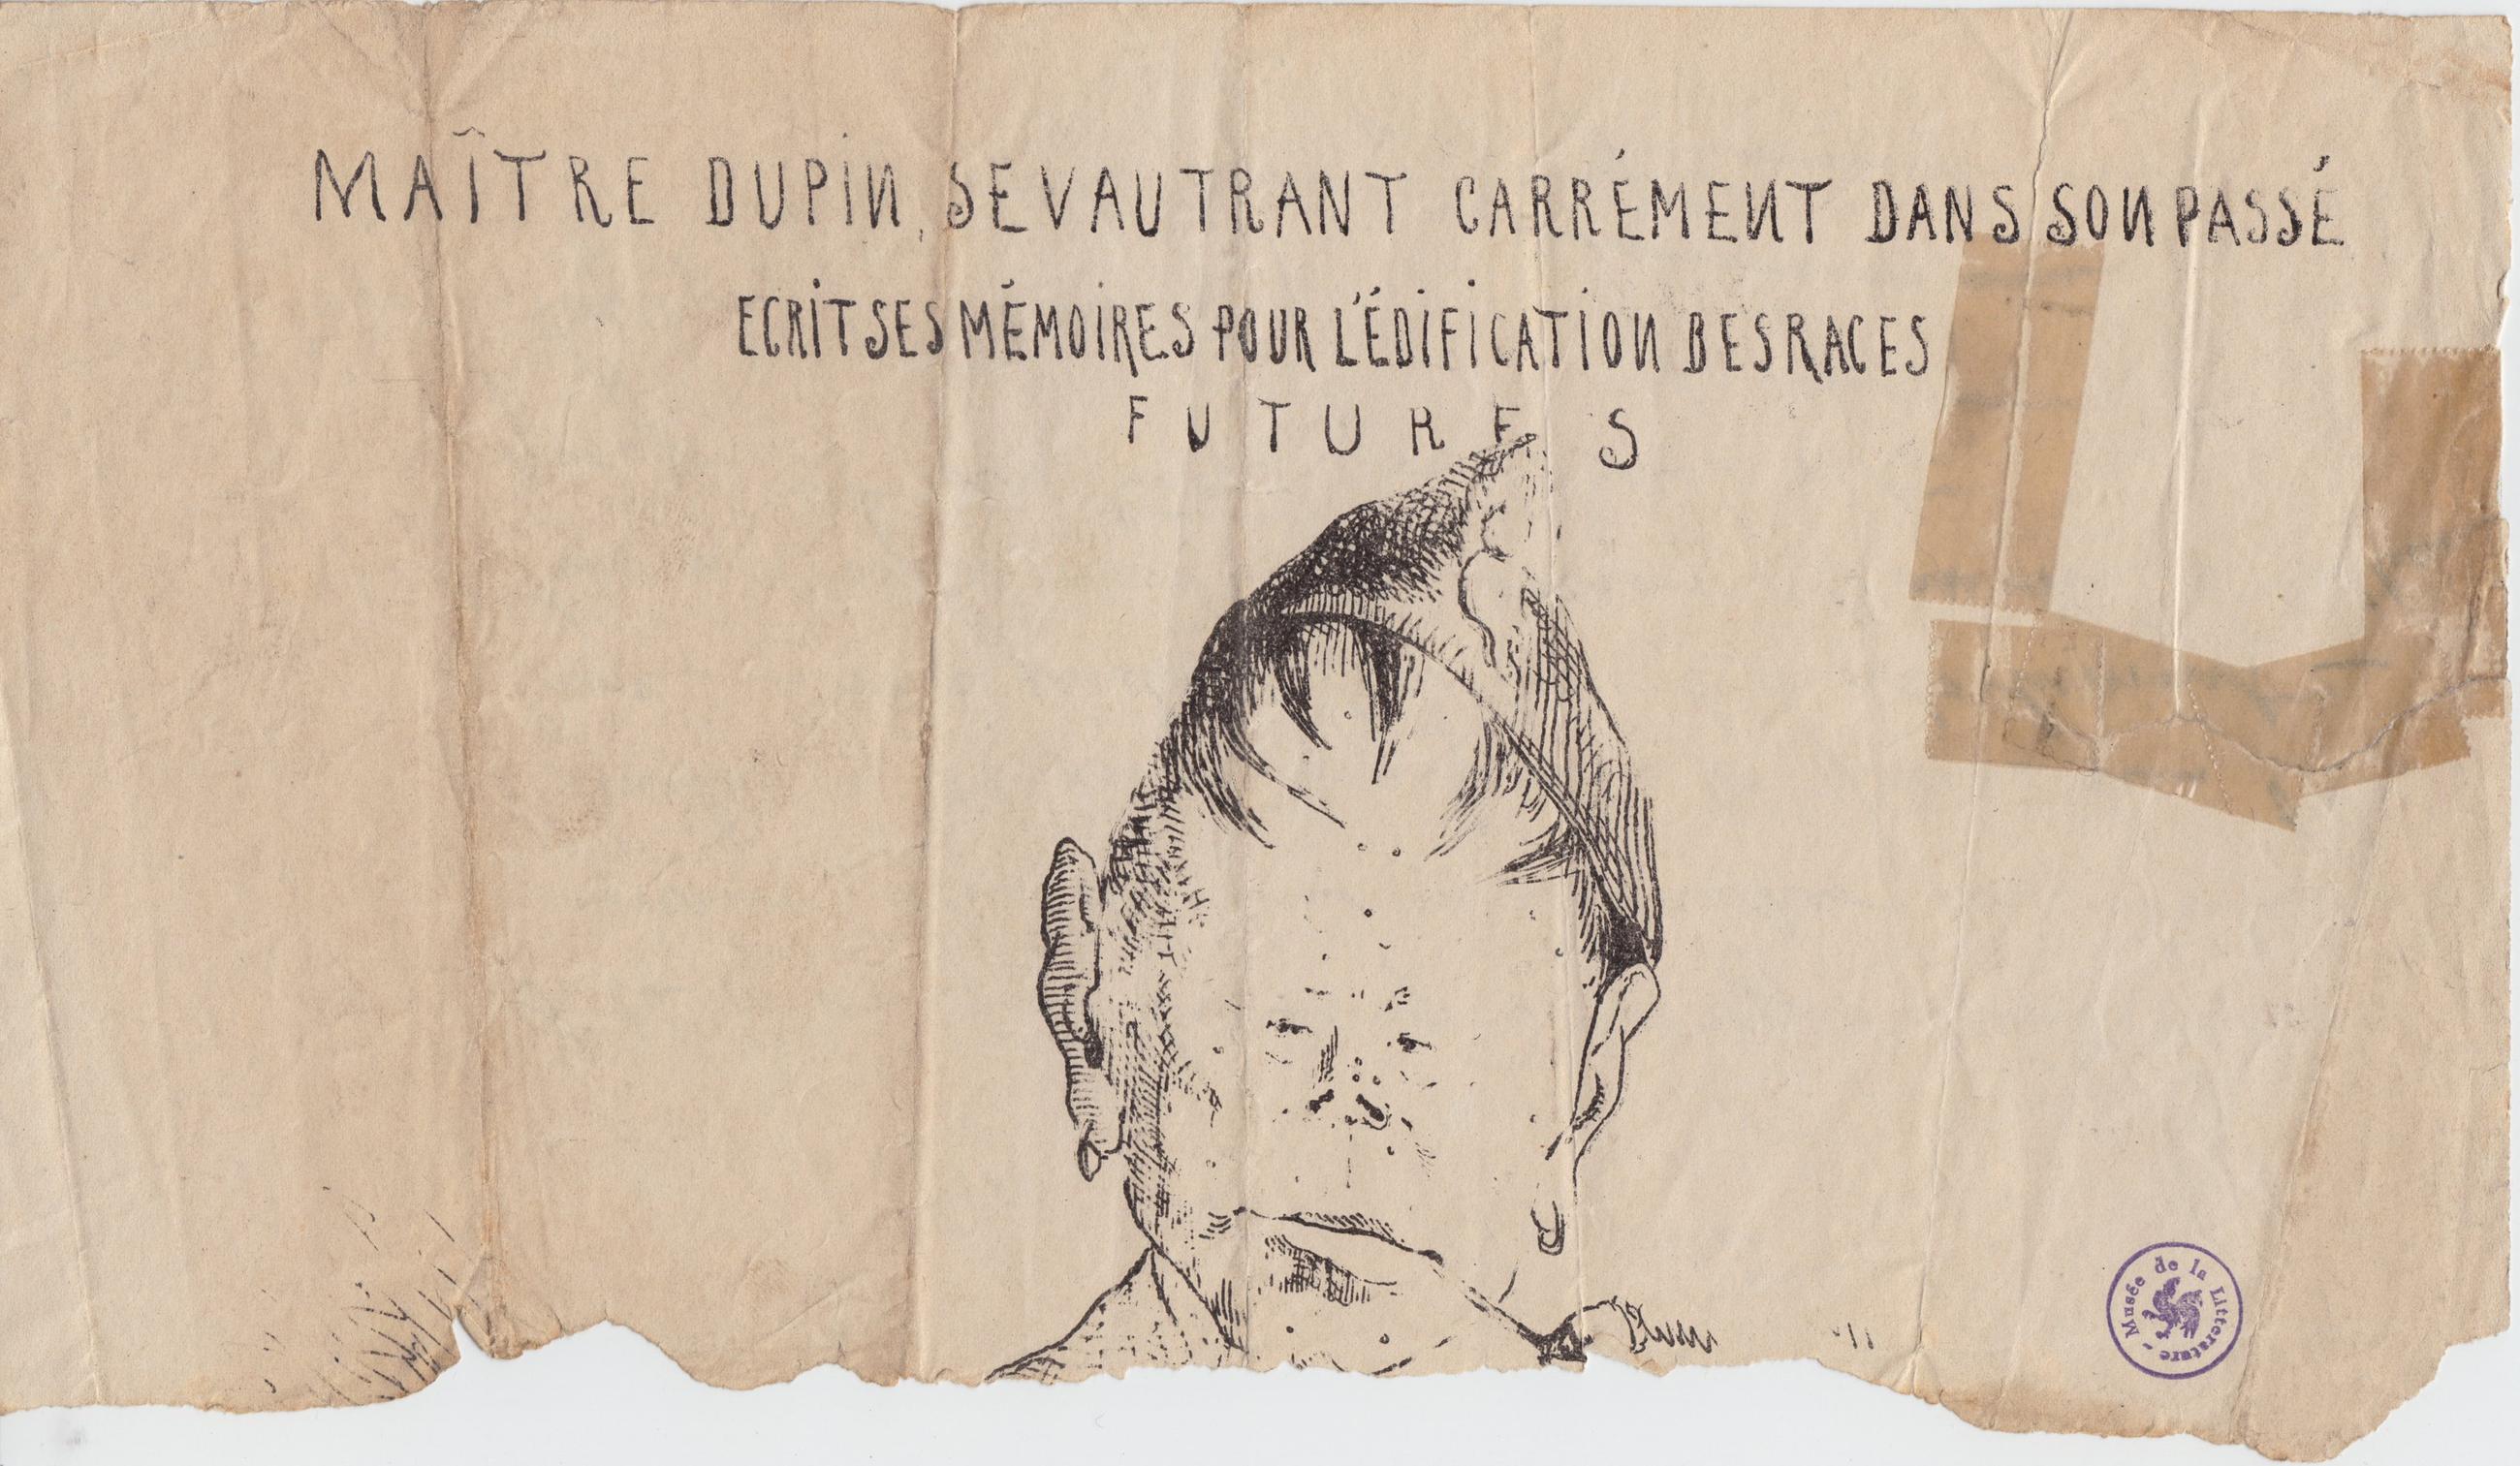 MAÎTRE DUPIN, SE VAUTRANT CARRÉMENT DANS SON PASSÉ
ECRIT SES MÉMOIRES POUR L'ÉDIFICATION DES RACES
FUTURES
Musée de la Litterature